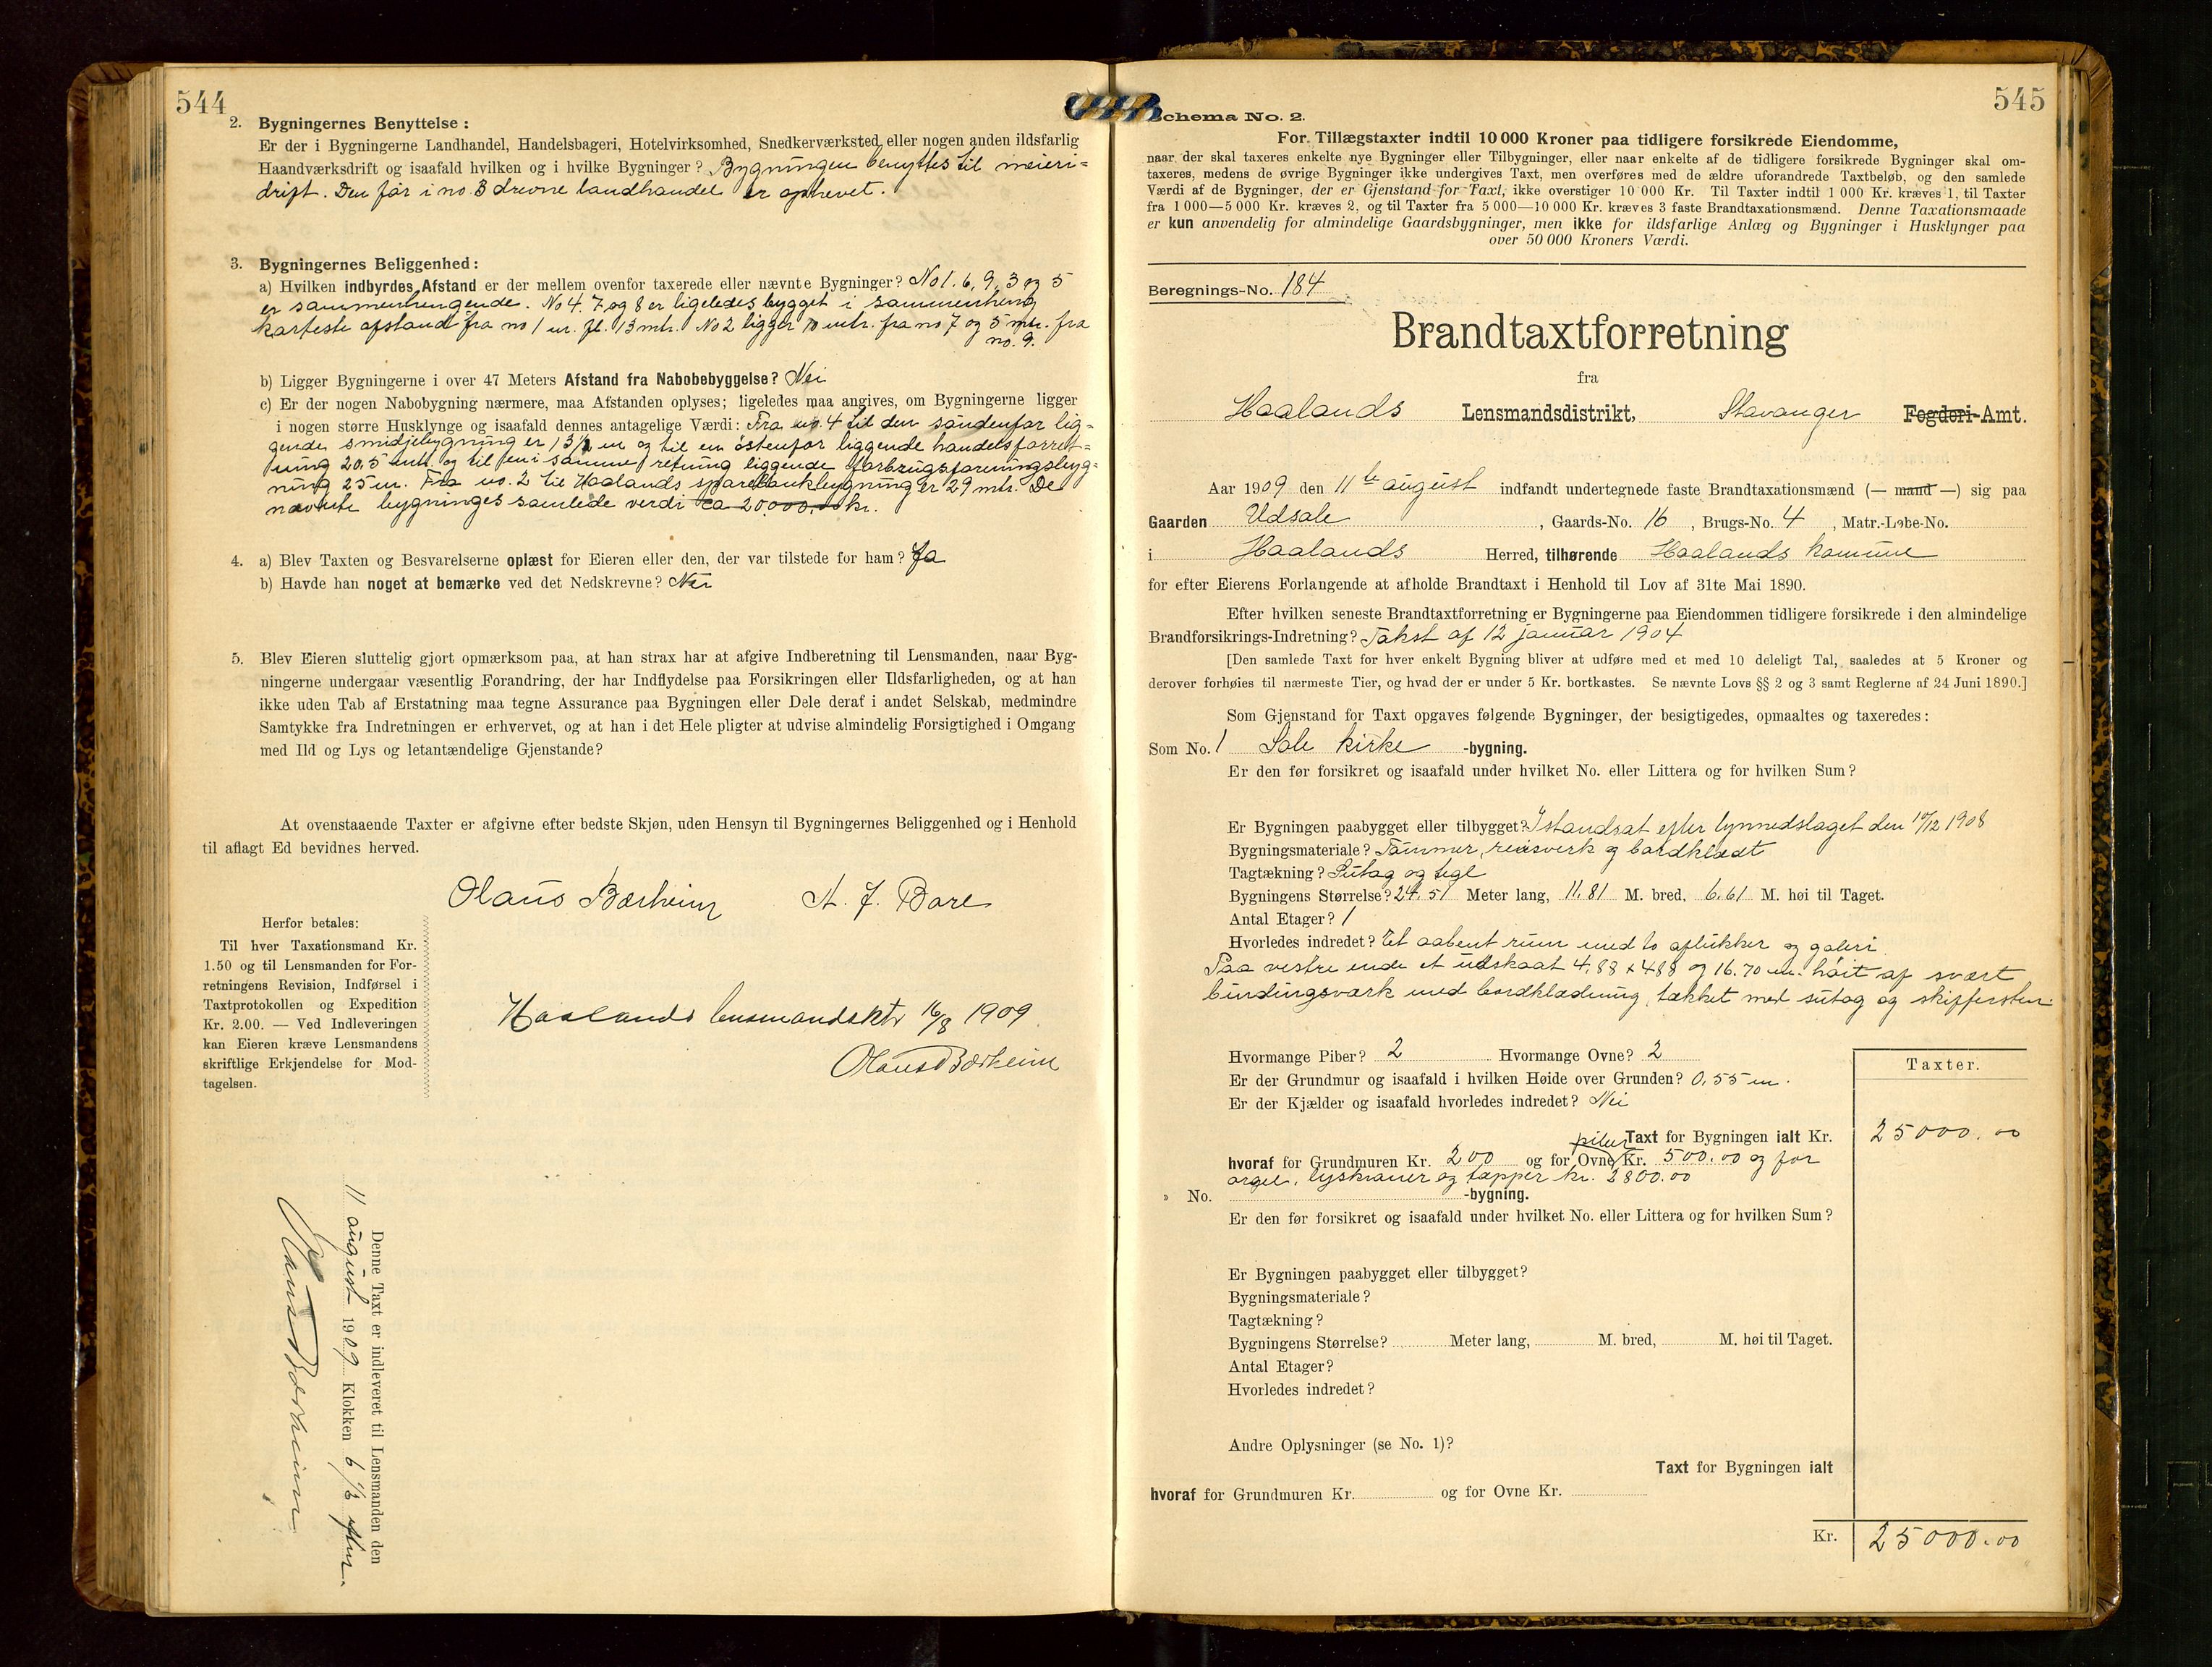 544
2. Bygningernes Benyttelse:
Er der i Bygningerne Landhandel, Handelsbageri, Hotelvirksomhed, Snedkerværksted eller nogen anden ildsfarlig
Haandværksdrift og isaafald hvilken og i hvilke Bygninger? Bygningen benyttes til meieri=
drift. Den før i no. 3 drevne landhandel er ophevet.
3. Bygningernes Beliggenhed:
a) Hvilken indbyrdes Afstand er der mellem ovenfor taxerede eller nævnte Bygninger? No 1, 6, 9, 3 og 5
er sammenhengende. No 4. 7 og 8 er ligeledes bygget i sammenheng
korteste afstand fra no 1 13 mtr. No 2 ligger 10 mtr. fra no 7 og 5 mtr. fra
no. 9.
b) Ligger Bygningerne i over 47 Meters Afstand fra Nabobebyggelse? Nei
c) Er der nogen Nabobygning nærmere, maa Afstanden oplyses; ligeledes maa angives, om Bygningerne ligger
i nogen større Husklynge og isaafald dennes antagelige Værdi: Fra no. 4 til den søndenfor lig=
gende smidjebygning er 13½ m og til en østenfor liggende handelsforret=
ning 20,5 mtr. og til en i samme retning liggende forbrugsforeningsbyg=
ning 25 m. Fra no. 2 til Haalands sparebankbygning er 29 mtr. De
nævnte bygninges samlede verdi ca 20.000,00 kr.
4. a) Blev Taxten og Besvarelserne oplæst for Eieren eller den, der var tilstede for ham? Ja
b) Havde han noget at bemærke ved det Nedskrevne? Nei
5. Blev Eieren sluttelig gjort opmærksom paa, at han strax har at afgive Indberetning til Lensmanden, naar Byg-
ningerne undergaar væsentlig Forandring, der har Indflydelse paa Forsikringen eller Ildsfarligheden, og at han
ikke uden Tab af Erstatning maa tegne Assurance paa Bygningen eller Dele deraf i andet Selskab, medmindre
Samtykke fra Indretningen er erhvervet, og at han i det Hele pligter at udvise almindelig Forsigtighed i Omgang
med Ild og Lys og letantændelige Gjenstande?
At ovenstaaende Taxter er afgivne efter bedste Skjøn, uden Hensyn til Bygningernes Beliggenhed og i Henhold
til aflagt Ed bevidnes herved.
Olaus Bærheim A. J. Bore
Herfor betales:
Til hver Taxationsmand Kr.
1.50 og til Lensmanden for For-
retningens Revision, Indførsel i
Taxtprotokollen og Expedition
Kr. 2.00. — Ved Indleveringen
kan Eieren kræve Lensmandens
skriftlige Erkjendelse for Mod-
tagelsen.
Haalands lensmandsktr 16/8 1909
Olaus Bærheim
Denne Taxt er indleveret til Lensmanden den
11 august 1909 Klokken 6 ½ eftm.
Olaus Bærheim
545
Schema No. 2.
For Tillægstaxter indtil 10 000 Kroner paa tidligere forsikrede Eiendomme,
naar der skal taxeres enkelte nye Bygninger eller Tilbygninger, eller naar enkelte af de tidligere forsikrede Bygninger skal om-
taxeres, medens de øvrige Bygninger ikke undergives Taxt, men overføres med de ældre uforandrede Taxtbeløb, og den samlede
Værdi af de Bygninger, der er Gjenstand for Taxt, ikke overstiger 10 000 Kr. Til Taxter indtil 1 000 Kr. kræves 1, til Taxter
fra 1 000—5 000 Kr. kræves 2, og til Taxter fra 5 000—10 000 Kr. kræves 3 faste Brandtaxationsmænd. Denne Taxationsmaade
er kun anvendelig for almindelige Gaardsbygninger, men ikke for ildsfarlige Anlæg og Bygninger i Husklynger paa
over 50 000 Kroners Værdi.
Beregnings-No. 184
Brandtaxtforretning
fra
Haalands Lensmandsdistrikt, Stavanger Fogderi-Amt.
Aar 1909 den 11te august indfandt undertegnede faste Brandtaxationsmænd (— mand —) sig paa
Gaarden Udsole, Gaards-No. 16, Brugs-No. 4, Matr.-Løbe-No.
i Haalands Herred, tilhørende Haalands komune
for efter Eierens Forlangende at afholde Brandtaxt i Henhold til Lov af 31te Mai 1890.
Efter hvilken seneste Brandtaxtforretning er Bygningerne paa Eiendommen tidligere forsikrede i den almindelige
Brandforsikrings-Indretning? Takst af 12 januar 1904
[Den samlede Taxt for hver enkelt Bygning bliver at udføre med et med 10 deleligt Tal, saaledes at 5 Kroner og
derover forhøies til nærmeste Tier, og hvad der er under 5 Kr. bortkastes. Se nævnte Lovs §§ 2 og 3 samt Reglerne af 24 Juni 1890.]
Som Gjenstand for Taxt opgaves følgende Bygninger, der besigtigedes, opmaaltes og taxeredes:
Som No. 1 Sole kirke -bygning.
Er den før forsikret og isaafald under hvilket No. eller Littera og for hvilken Sum?
Er Bygningen paabygget eller tilbygget? Istandsat efter lynnedslaget den 10/12 1908
Bygningsmateriale? Tømmer, reisverk og bordklædt
Tagtækning? Sutag og tegl
Bygningens Størrelse? 24,51 Meter lang, 11,81 M. bred, 6,61 M. høi til Taget.
Antal Etager? 1
Hvorledes indredet? Et aabent rum med to aflukker og galeri
Paa vestre ende et udskaat 4,88 x 488 og 16.70 m. høit af svært
bindingsværk med bordklædning, tækket med sutag og skiffersten.
Hvormange Piber? 2 Hvormange Ovne? 2
Er der Grundmur og isaafald i hvilken Høide over Grunden? 0,55 m.
Er der Kjælder og isaafald hvorledes indredet? Nei
Taxter.
Taxt for Bygningen ialt Kr. 25000.00
piber
hvoraf for Grundmuren Kr. 200 og for Ovne Kr. 500.00 og for
orgel, lyskroner og tæpper kr. 2800.00
» No. -bygning.
Er den før forsikret og isaafald under hvilket No. eller Littera og for hvilken Sum?
Er Bygningen paabygget eller tilbygget?
Bygningsmateriale?
Tagtækning?
Bygningens Størrelse? Meter lang, M. bred, M. høi til Taget.
Antal Etager?
Hvorledes indredet?
Andre Oplysninger (se No. 1)?
Taxt for Bygningen ialt
hvoraf for Grundmuren Kr. og for Ovne Kr.
Kr. 25000.00